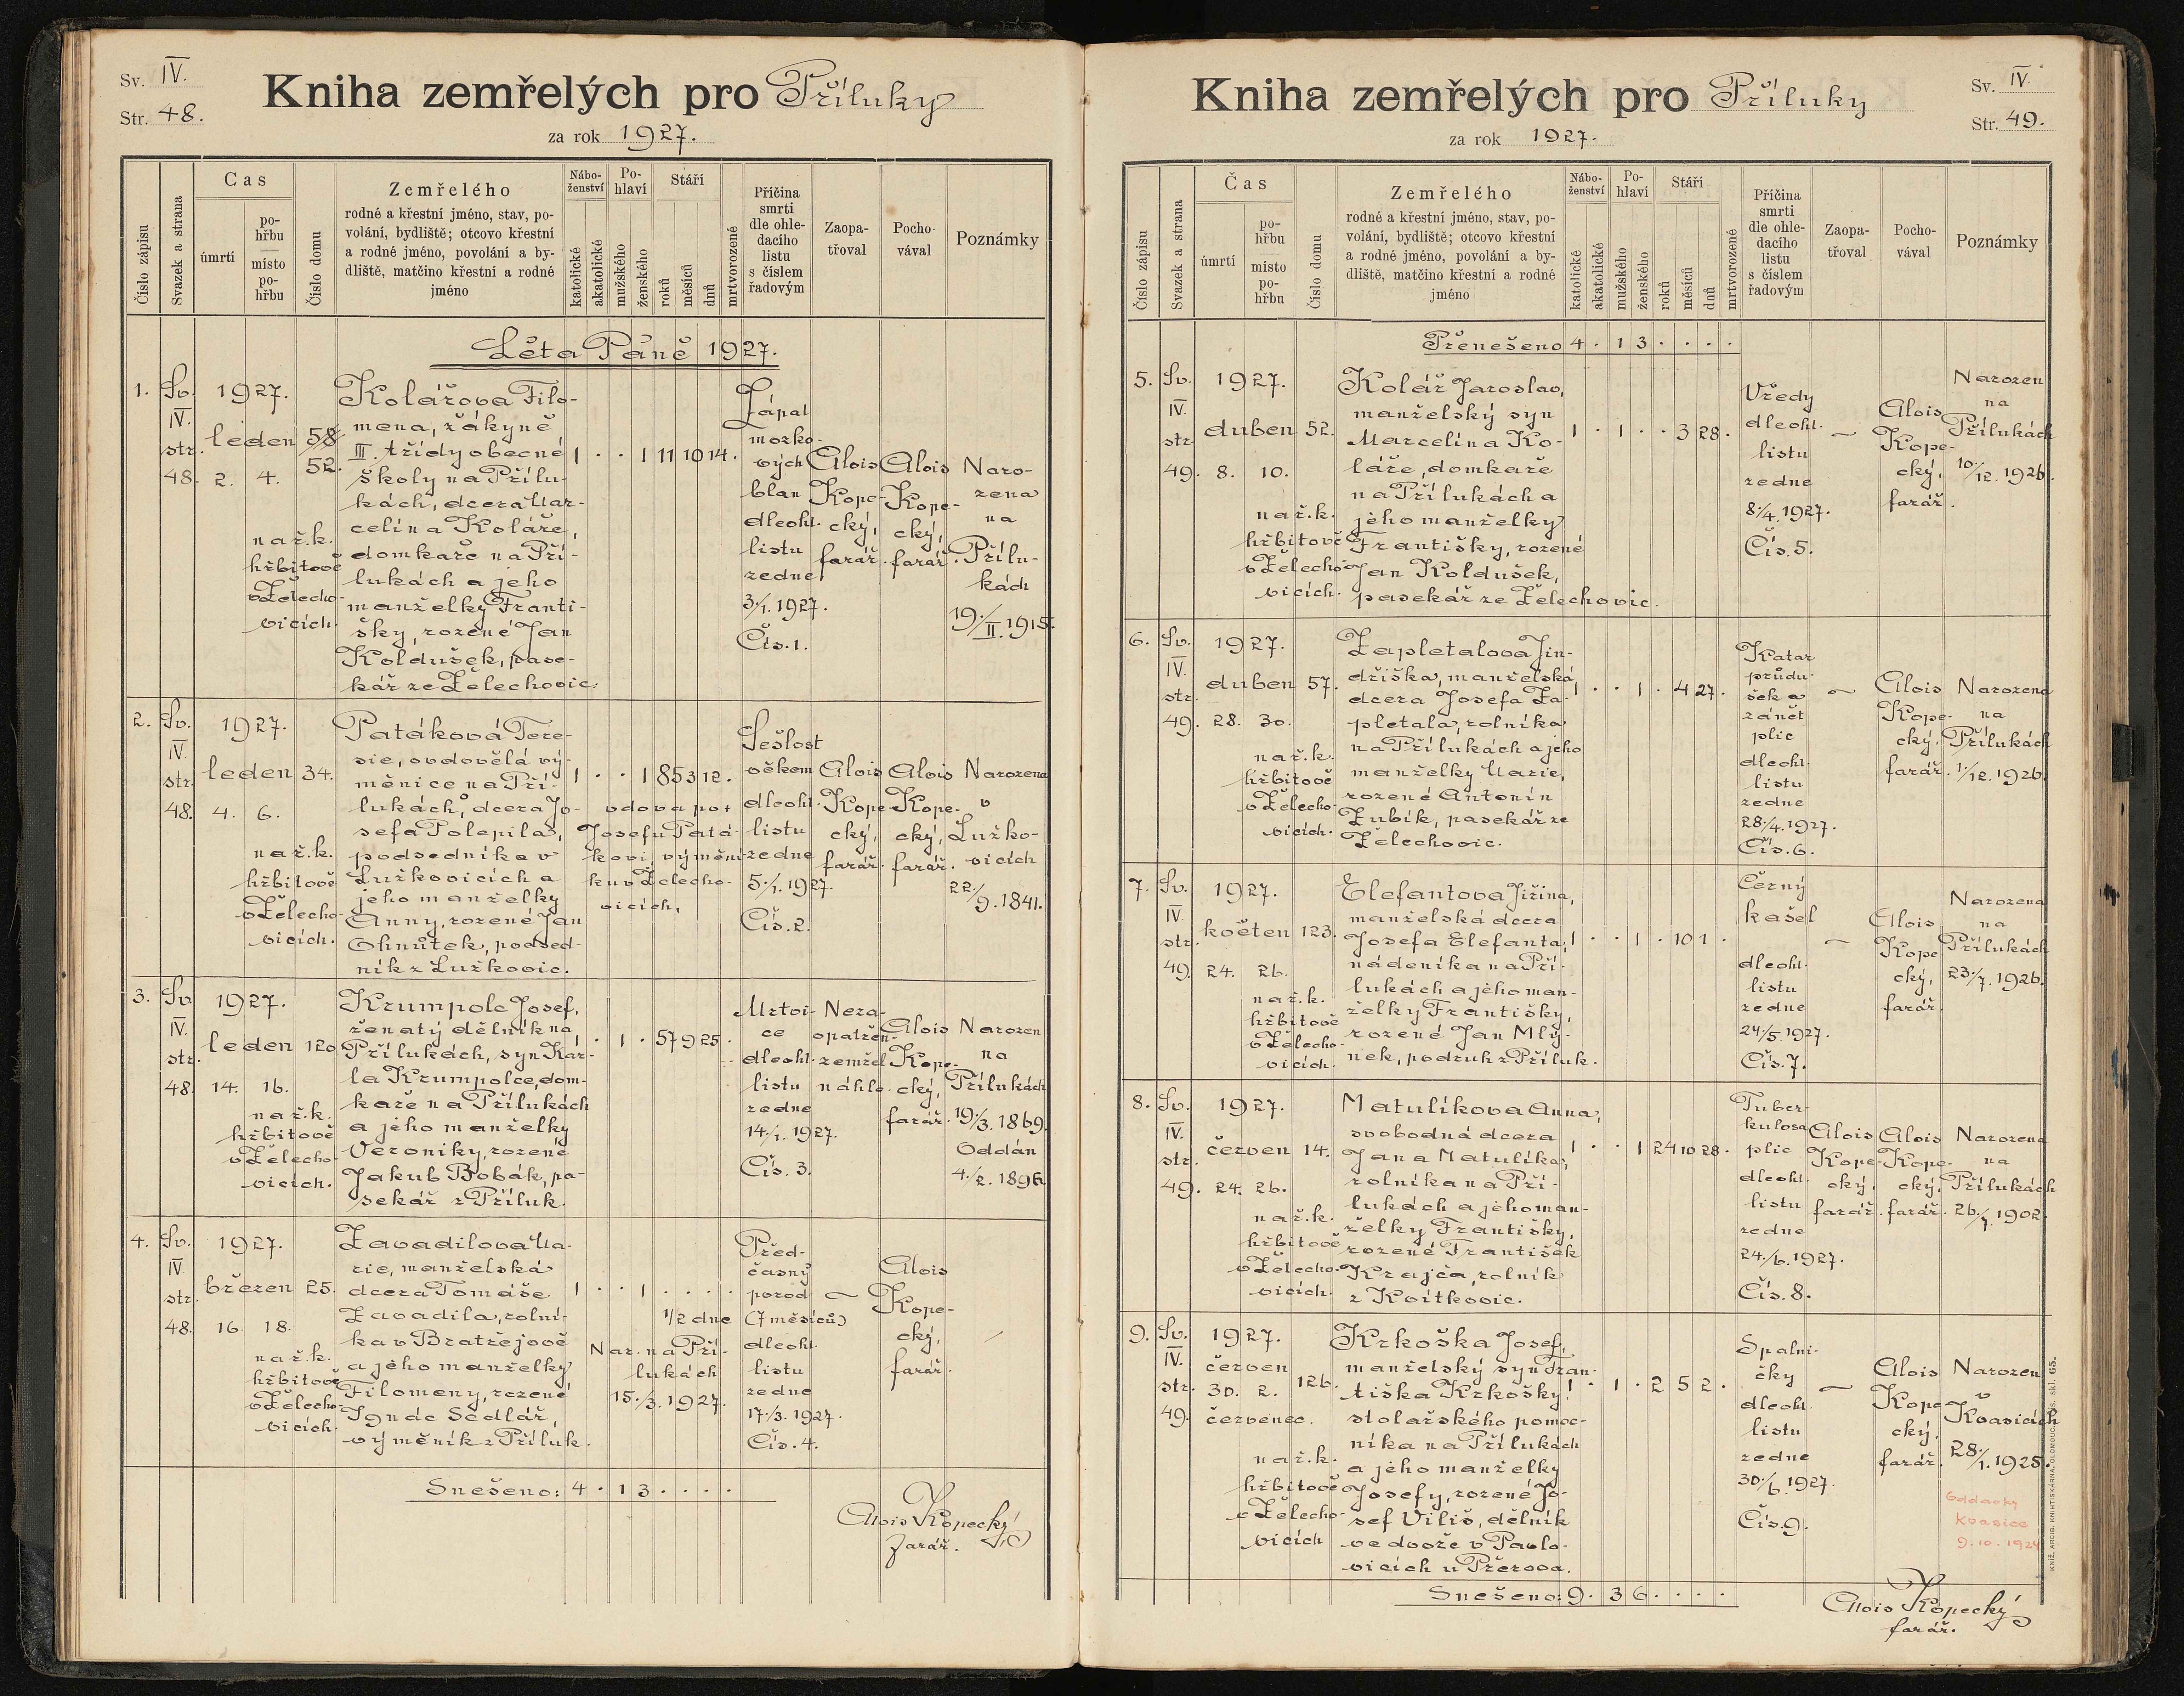 Sv. IV.
Str. 48.
Kniha zemřelých pro Příluky
za rok 1927.
Číslo zápisu
Svazek a strana
Čas
úmrtí
po-
hřbu
místo
po-
hřbu
Číslo domu
Zemřelého
rodné a křestní jméno, stav, po-
volání, bydliště; otcovo křestní
a rodné jméno, povolání a by-
dliště, matčino křestní a rodné
jméno
Nábo-
ženství
katolické
akatolické
Po-
hlaví
mužského
ženského
Stáří
roků
měsíců
dnů
mrtvorozené
Příčina
smrti
dle ohle-
dacího
listu
s číslem
řadovým
Zaopa-
třoval
Pocho-
vával
Poznámky
Léta Páně 1927.
1.
Sv.
IV.
str.
48.
1927.
leden
2. 4.
na ř. k.
hřbitově
v Želecho-
vicích.
58
52.
Kolářova Filo-
mena, žákyně
III. třídy obecné
školy na Přílu-
kách, dcera Mar-
celína Koláře,
domkaře na Pří-
lukách a jeho
manželky Franti-
šky, rozené Jan
Koldušek, pase-
kář ze Želechovic.
1 . . 1 11 10 14 .
Zápal
mozko-
vých
blan
dle ohl.
listu
ze dne
3./1. 1927.
Čís. 1.
Alois
Kope-
cký,
farář.
Alois
Kope-
cký,
farář.
Naro-
zena
na
Přílu-
kách
19./II. 1915.
2.
Sv.
IV.
str.
48.
1927.
leden
4. 6.
na ř. k.
hřbitově
v Želecho-
vicích.
34.
Patáková Tere-
sie, ovdovělá vý-
měnice na Pří-
lukách, dcera Jo-
sefa Polepila,
podsedníka v
Lužkovicích a
jeho manželky
Anny, rozené Jan
Ohnůtek, podsed-
ník z Lužkovic.
1 . . 1 85 3 12 .
vdova po +
Josefu Patá-
kovi, výmění-
ku v Želecho-
vicích.
Sešlost
věkem
dle ohl.
listu
ze dne
5./1. 1927.
Čís. 2.
Alois
Kope-
cký,
farář.
Alois
Kope-
cký,
farář.
Narozena
v
Lužko-
vicích
22./9. 1841.
3.
Sv.
IV.
str.
48.
1927.
leden
14. 16.
na ř. k.
hřbitově
v Želecho-
vicích.
120
Krumpolc Josef,
ženatý dělník na
Přílukách, syn Kar-
la Krumpolce, dom-
kaře na Přílukách
a jeho manželky
Veroniky, rozené
Jakub Bobák, pa-
sekář z Příluk.
1 . 1 . 57 9 25 .
Mrtvi-
ce
dle ohl.
listu
ze dne
14./1. 1927.
Čís. 3.
Neza-
opatřen-
zemřel
náhle.
Alois
Kope-
cký,
farář.
Narozen
na
Přílukách
19./3. 1869.
Oddán
4./2. 1896.
4.
Sv.
IV.
str.
48.
1927.
březen
16. 18.
na ř. k.
hřbitově
v Želecho-
vicích.
25.
Zavadilova Ma-
rie, manželská
dcera Tomáše
Zavadila, rolní-
ka v Bratřejově
a jeho manželky
Filomeny, rozené
Ignác Sedlář,
výměník z Příluk.
1 . . 1 . . . .
1/2 dne
Nar. na Pří-
lukách
15./3. 1927.
Před-
časný
porod
(7 měsíců)
dle ohl.
listu
ze dne
17./3. 1927.
Čís. 4.
Alois
Kope-
cký,
farář.
Snešeno: 4 . 1 3 . . . .
Alois Kopecký
farář.
Kniha zemřelých pro Příluky
za rok 1927.
Sv. IV.
Str. 49.
Číslo zápisu
Svazek a strana
Čas
úmrtí
po-
hřbu
místo
po-
hřbu
Číslo domu
Zemřelého
rodné a křestní jméno, stav, po-
volání, bydliště; otcovo křestní
a rodné jméno, povolání a by-
dliště, matčino křestní a rodné
jméno
Nábo-
ženství
katolické
akatolické
Po-
hlaví
mužského
ženského
Stáří
roků
měsíců
dnů
mrtvorozené
Příčina
smrti
dle ohle-
dacího
listu
s číslem
řadovým
Zaopa-
třoval
Pocho-
vával
Poznámky
Přenešeno 4 . 1 3 . . . .
5.
Sv.
IV.
str.
49.
1927.
duben
8. 10.
na ř. k.
hřbitově
v Želecho-
vicích.
52.
Kolář Jaroslav,
manželský syn
Marcelína Ko-
láře, domkaře
na Přílukách a
jeho manželky
Františky, rozené
Jan Koldušek,
pasekář ze Želechovic.
1 . 1 . . 3 28 .
Vředy
dle ohl.
listu
ze dne
8./4. 1927.
Čís. 5.
Alois
Kope-
cký,
farář.
Narozen
na
Přílukách
10./12. 1926.
6.
Sv.
IV.
str.
49.
1927.
duben
28. 30.
na ř. k.
hřbitově
v Želecho-
vicích.
57.
Zapletalova Jin-
dřiška, manželská
dcera Josefa Za-
pletala, rolníka
na Přílukách a jeho
manželky Marie,
rozené Antonín
Zubík, pasekář ze
Želechovic.
1 . . 1 . 4 27 .
Katar
průdu-
šek a
zánět
plic
dle ohl.
listu
ze dne
28./4. 1927.
Čís. 6.
Alois
Kope-
cký,
farář.
Narozena
na
Přílukách
1./12. 1926.
7.
Sv.
IV.
str.
49.
1927.
květen
24. 26.
na ř. k.
hřbitově
v Želecho-
vicích.
123.
Elefantova Jiřina,
manželská dcera
Josefa Elefanta,
nádeníka na Pří-
lukách a jeho man-
želky Františky,
rozené Jan Mlý-
nek, podruh z Příluk.
1 . . 1 . 10 1 .
Černý
kašel
dle ohl.
listu
ze dne
24./5. 1927.
Čís. 7.
Alois
Kope-
cký,
farář.
Narozena
na
Přílukách
23./7. 1926.
8.
Sv.
IV.
str.
49.
1927.
červen
24. 26.
na ř. k.
hřbitově
v Želecho-
vicích.
14.
Matulíkova Anna,
svobodná dcera
Jana Matulíka,
rolníka na Pří-
lukách a jeho man-
želky Františky,
rozené František
Krajča, rolník
z Kvítkovic.
1 . . 1 24 10 28 .
Tuber-
kulosa
plic
dle ohl.
listu
ze dne
24./6. 1927.
Čís. 8.
Alois
Kope-
cký,
farář.
Alois
Kope-
cký,
farář.
Narozena
na
Přílukách
26./7. 1902.
9.
Sv.
IV.
str.
49.
1927.
červen
30. 2.
červenec.
na ř. k.
hřbitově
v Želecho-
vicích
126.
Krkoška Josef,
manželský syn Fran-
tiška Krkošky,
stolařského pomoc-
níka na Přílukách
a jeho manželky
Josefy, rozené Jo-
sef Viliš, dělník
ve dvoře v Pavlo-
vicích u Přerova.
1 . 1 . 2 5 2 .
Spalni-
čky
dle ohl.
listu
ze dne
30./6. 1927.
Čís. 9.
Alois
Kope-
cký,
farář.
Narozen
v
Kvasicích
28./1. 1925.
Oddavky
Kvasice
9. 10. 1924
Snešeno: 9 . 3 6 . . . .
Alois Kopecký
farář.
KNIŽ. ARCIB. KNIHTISKÁRNA, OLOMOUC, skl. 65.